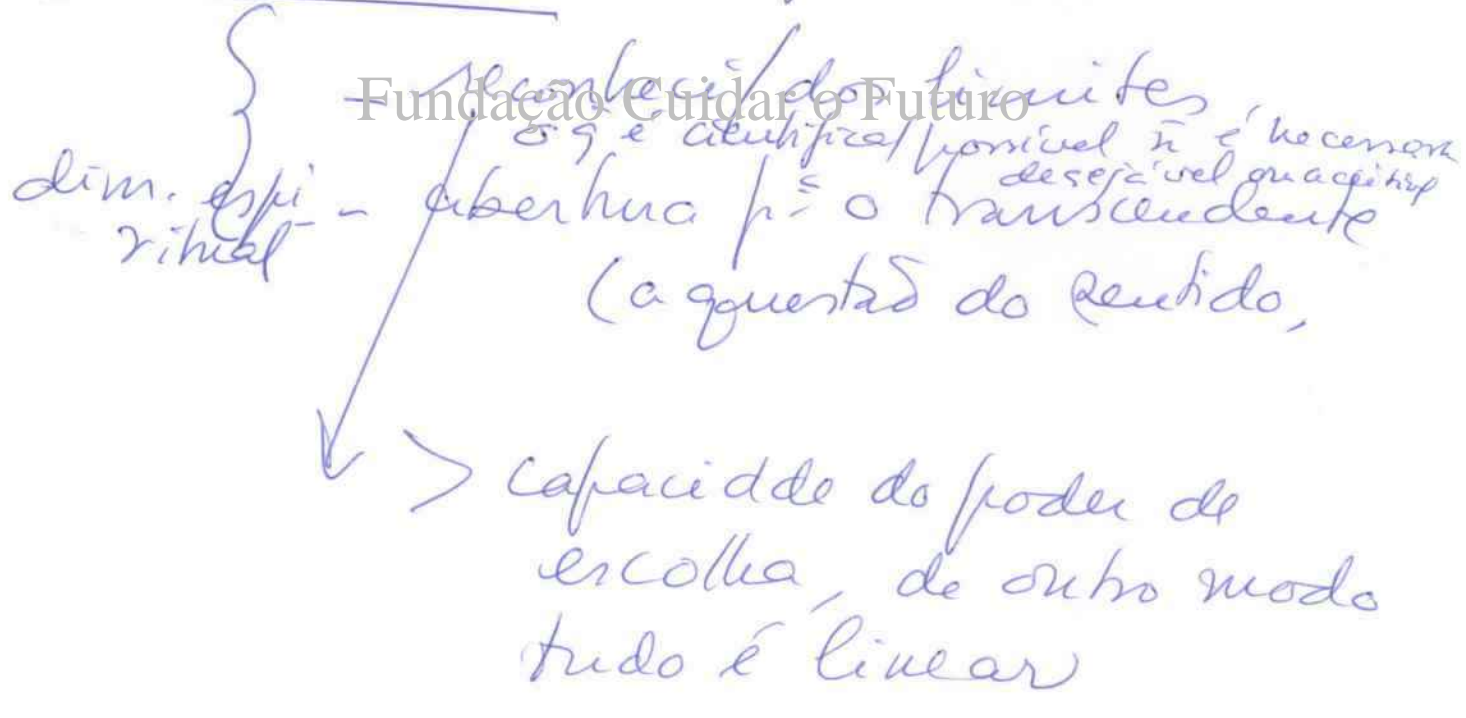 Fundação Cuidar o Futuro
- reconheci/ dos limites,
o q é cientifica/ possível ñ é necessaria
desejável ou aceitável
dim. espi
ritual
- abertura pª o transcendente
(a questão do sentido,
> capacidde do poder de
escolha, de outro modo
tudo é linear